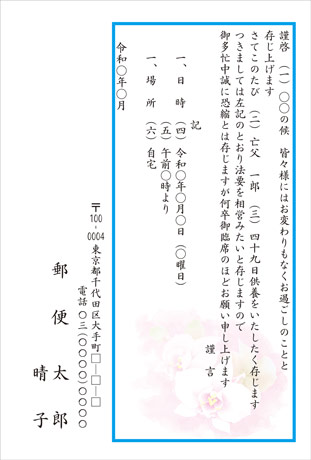 謹啓　(一)　〇〇の候　皆々様にはお変わりもなくお過ごしのことと
存じ上げます
さてこのたび　(二)　亡父　一郎　(三)　四十九日供養をいたしたく存じます
つきましては左記のとおり法要を相営みたいと存じますので
御多忙中誠に恐縮とは存じますが何卒御臨席のほどお願い申し上げます
謹言
記
一、日　時　(四)　令和〇年〇月〇日(〇曜日)
(五)　午前〇時より
一、場　所　(六)　自宅
令和〇年〇月
〒100-0004　東京都千代田区大手町□-□-□
電話　〇三(〇〇〇〇)〇〇〇〇
郵　便　太　郎
晴　子